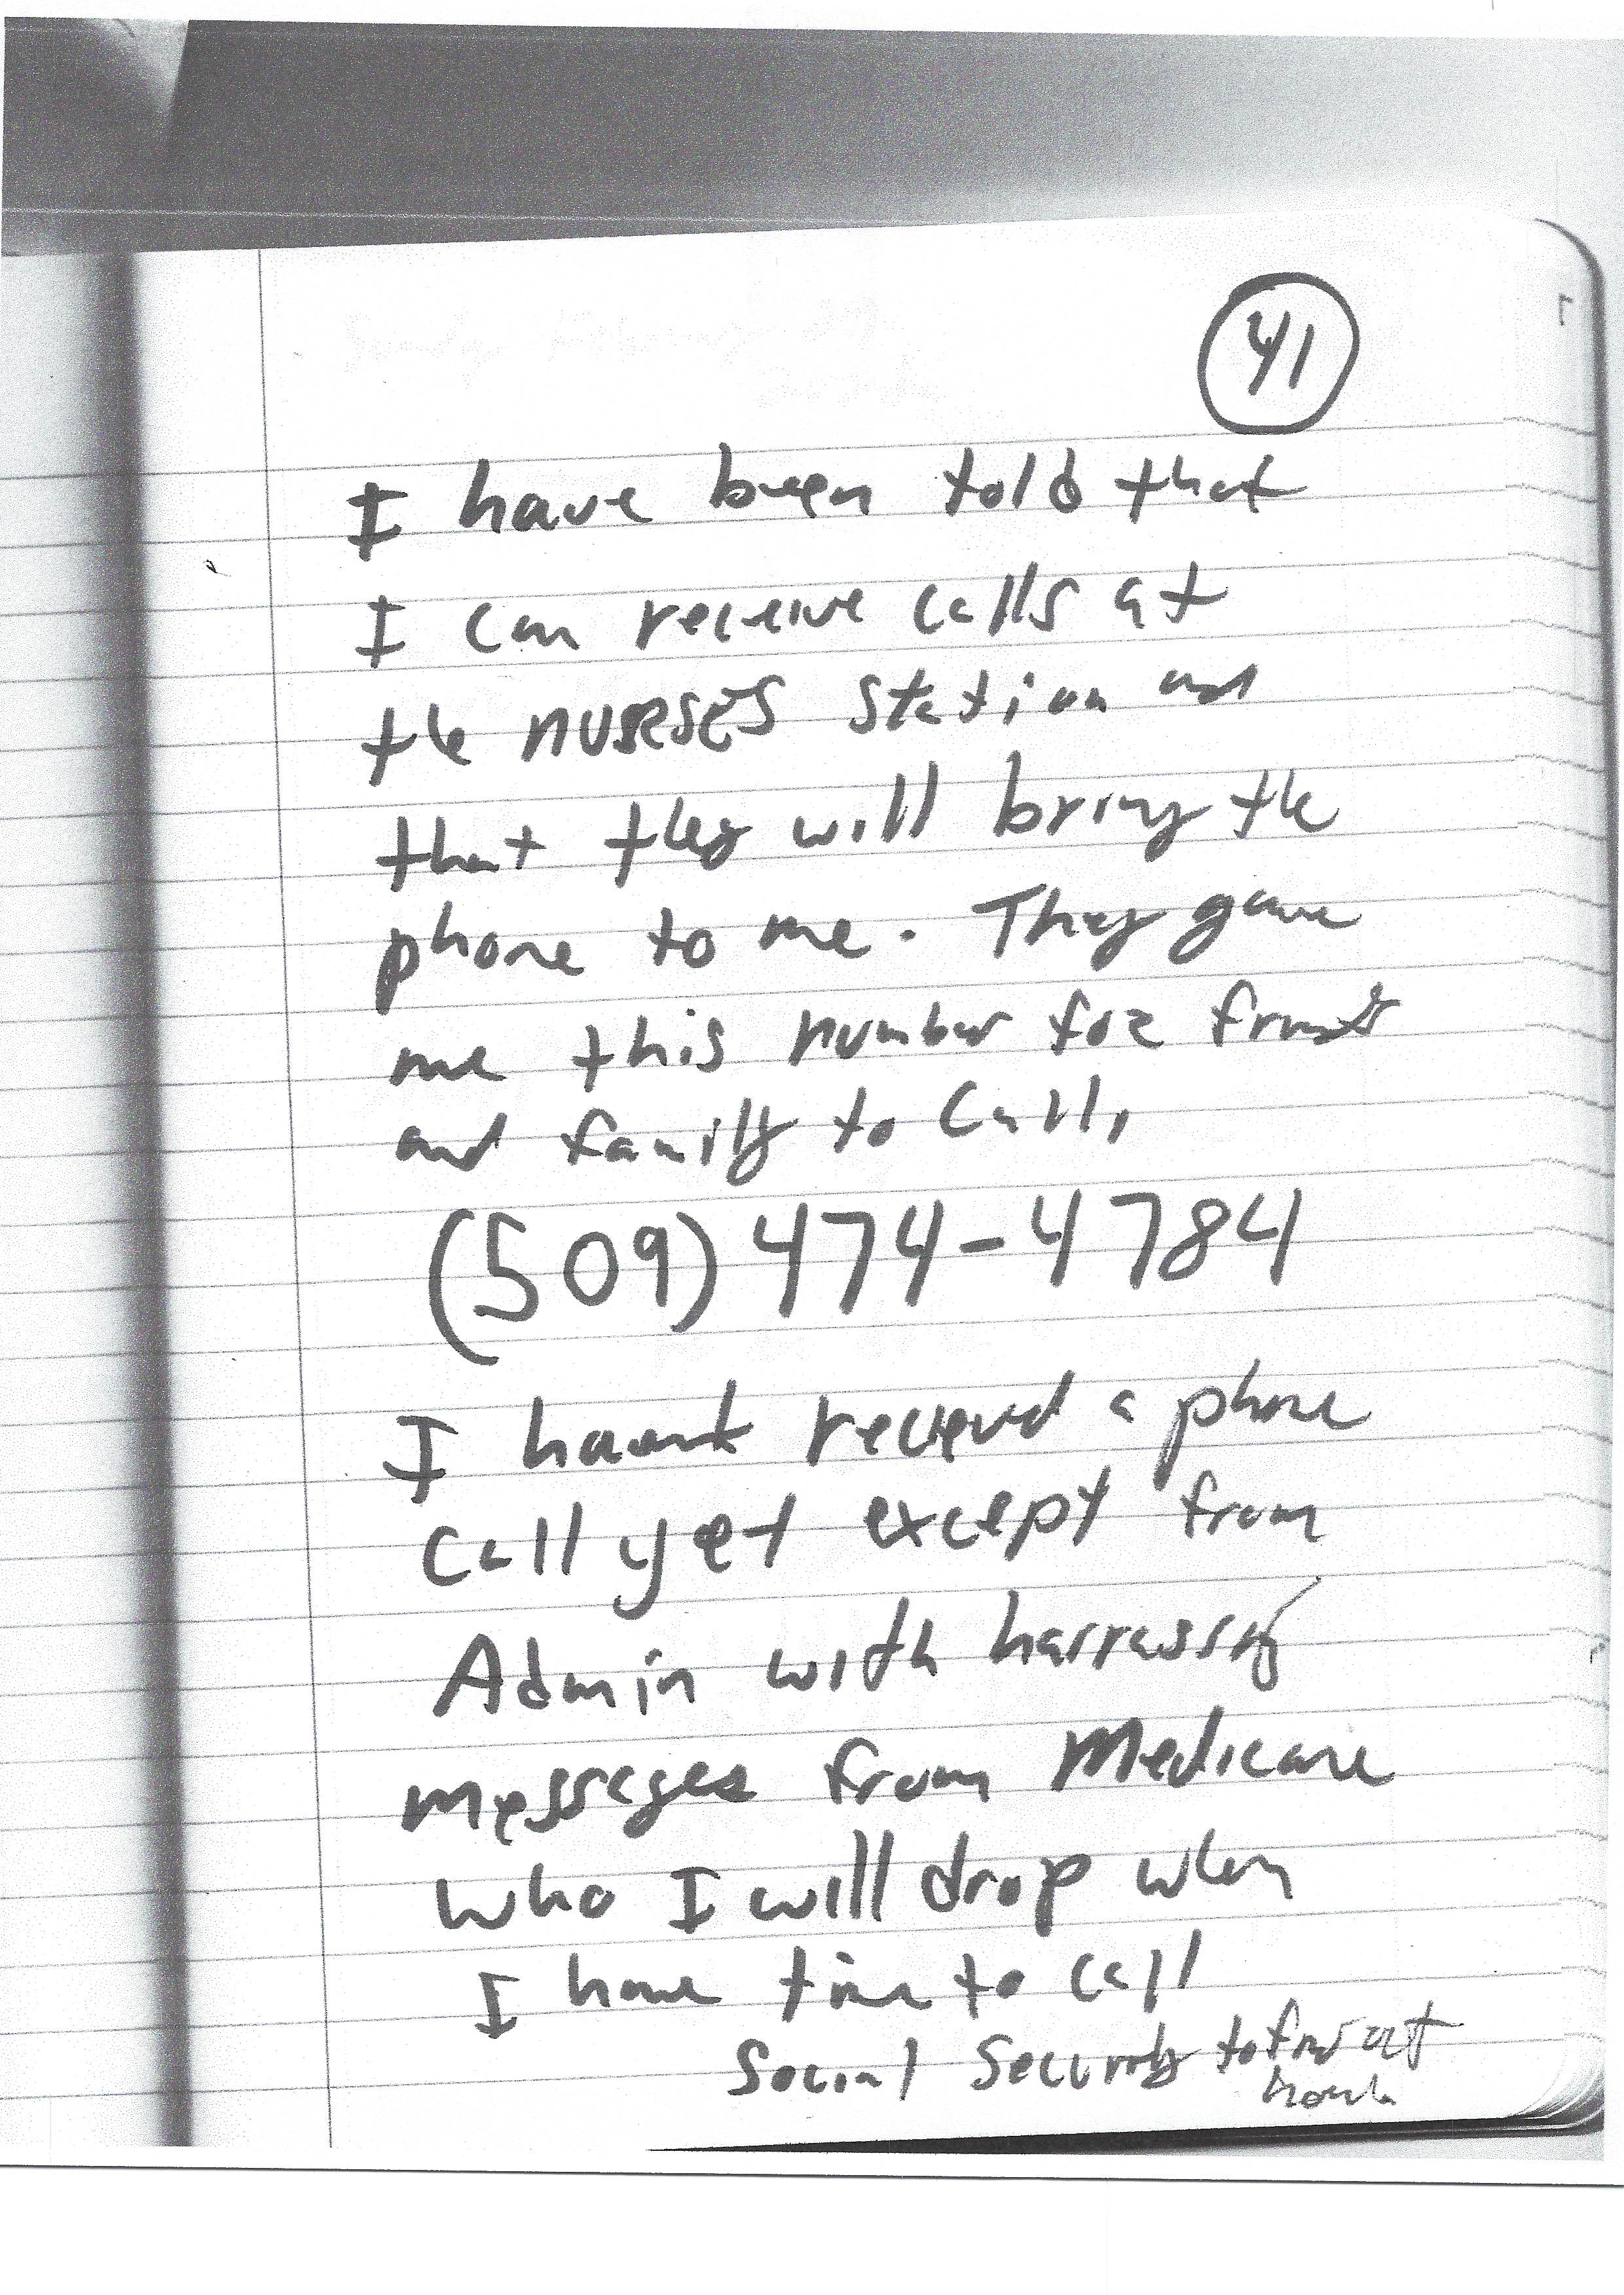 41
I have been told that
I can receive calls at
the NURSES station and
that they will bring the
phone to me. They gave
me this number for friends
and family to call,
(509) 474-4784
I havent recieved a phone
call yet except from
Admin with harrassing
messages from Medicare
who I will drop when
I have time to call
Social Security to find out